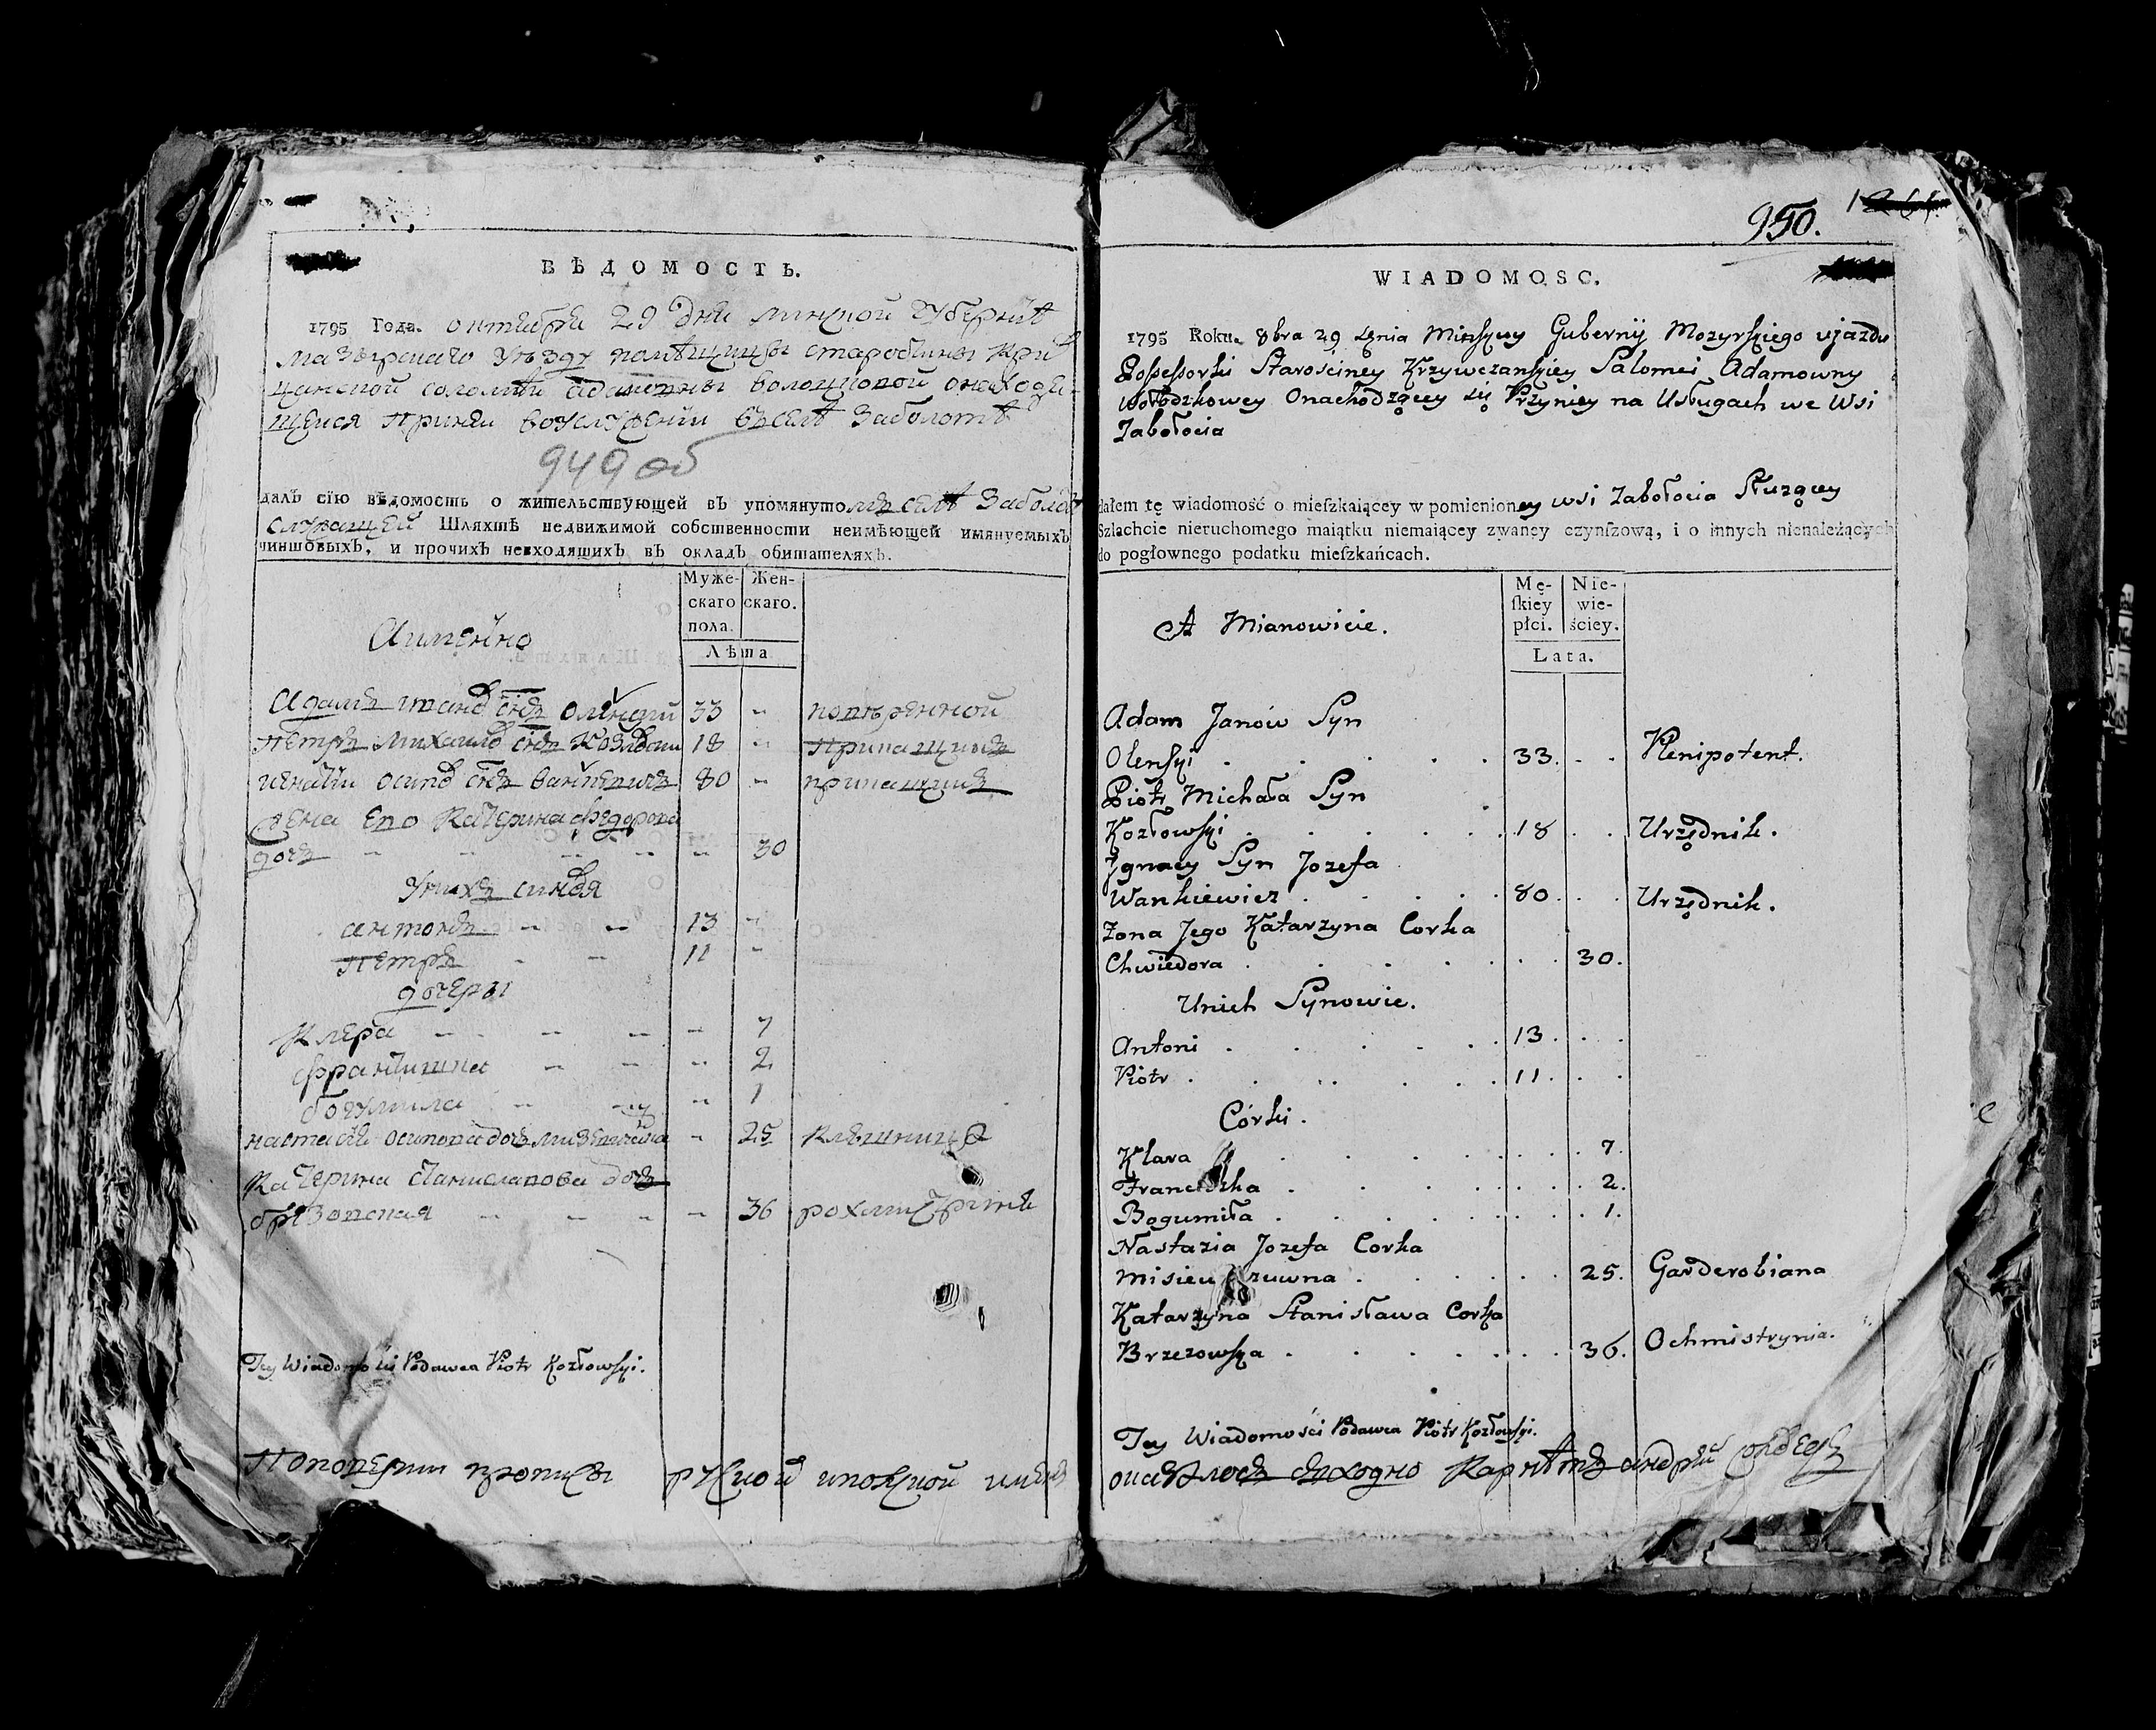 ВѢДОМОСТЬ.
1795 Года. октября 29 дня минской губерніи
мазырскаго уѣзду помѣщицы старостины кри
чанской соломѣи адамовны волоцковой онаходя-
щейся при ней воуслуженіи въ селѣ Заболотѣ
949 об
далъ сїю вѣдомость о жительствующей въ упомянутомъ селѣ Заболотѣ
служащей Шляхтѣ недвижимой собственности неимѣющей имянуемыхъ
чиншовыхъ, и прочихъ невходящихъ въ окладъ обитателяхъ.
Муже- Жен-
скаго скаго.
пола.
Лѣта
Аименно
Адамъ ивановъ снъ оленский 33 - повѣренной
Петръ михайловъ снъ Козловски 18 - прикащикъ
игнатïй осиповъ снъ ванкевичъ 80 - прикащикъ
жена его Катерина федорова
дочь - - - - 30
Унихъ сыновя
антонъ - - 13 -
Петръ - - 11 -
дочеры
Клера - - - - 7
францишка - - - 2
богумила - - - 1
настасия осипова дочь мисевичевна - 25 Ключница
Катерина станиславова дочь
бржзовская - - - - 36 охмистриня
Tey Wiadomości Podawca Piotr Kozłowski.
950.
WIADOMOSC.
1795 Roku. 8bra 29 dnia Minskiey Gubernij Mozyrskiego ujazdu
Possessorki Starościney Krzywczanskiey Salomei Adamowny
Wołodzkowey Onachodzącey się Przyniey na Usługach we Wsi
Zabołocia
dałem tę wiadomość o mieſzkaiącey w pomienioney wsi Zabołocia Służącey
Szlachcie nieruchomego maiątku niemaiącey zwaney czynſzową, i o innych nienależących
do pogłownego podatku mieſzkańcach.
Mę- Nie-
ſkiey wie-
płci. ściey.
Lata.
A Mianowicie.
Adam Janów Syn
Olenski . . . . . 33. . . Plenipotent.
Piotr Michała Syn
Kozłowski . . . . . 18 . . Urzędnik.
Jgnacy Syn Jozefa
Wankiewicz . . . . 80 . . Urzędnik.
Zona Jego Katarzyna Corka
Chwiedora . . . . . . . 30.
Unich Synowie.
Antoni . . . . . 13 . . .
Piotr . . . . . 11 . . .
Córki.
Klara . . . . . . . 7.
Franciszka . . . . . . . 2.
Bogumiła . . . . . . . 1.
Nastazia Jozefa Corka
Misiewiczuwna . . . . . 25. Garderobiana
Katarzyna Stanisława Corka
Brzezowska . . . . . . 36. Ochmistrynia.
Tey Wiadomości Podawca Piotr Kozłowski.
оказалось сходно Карнетъ андрей